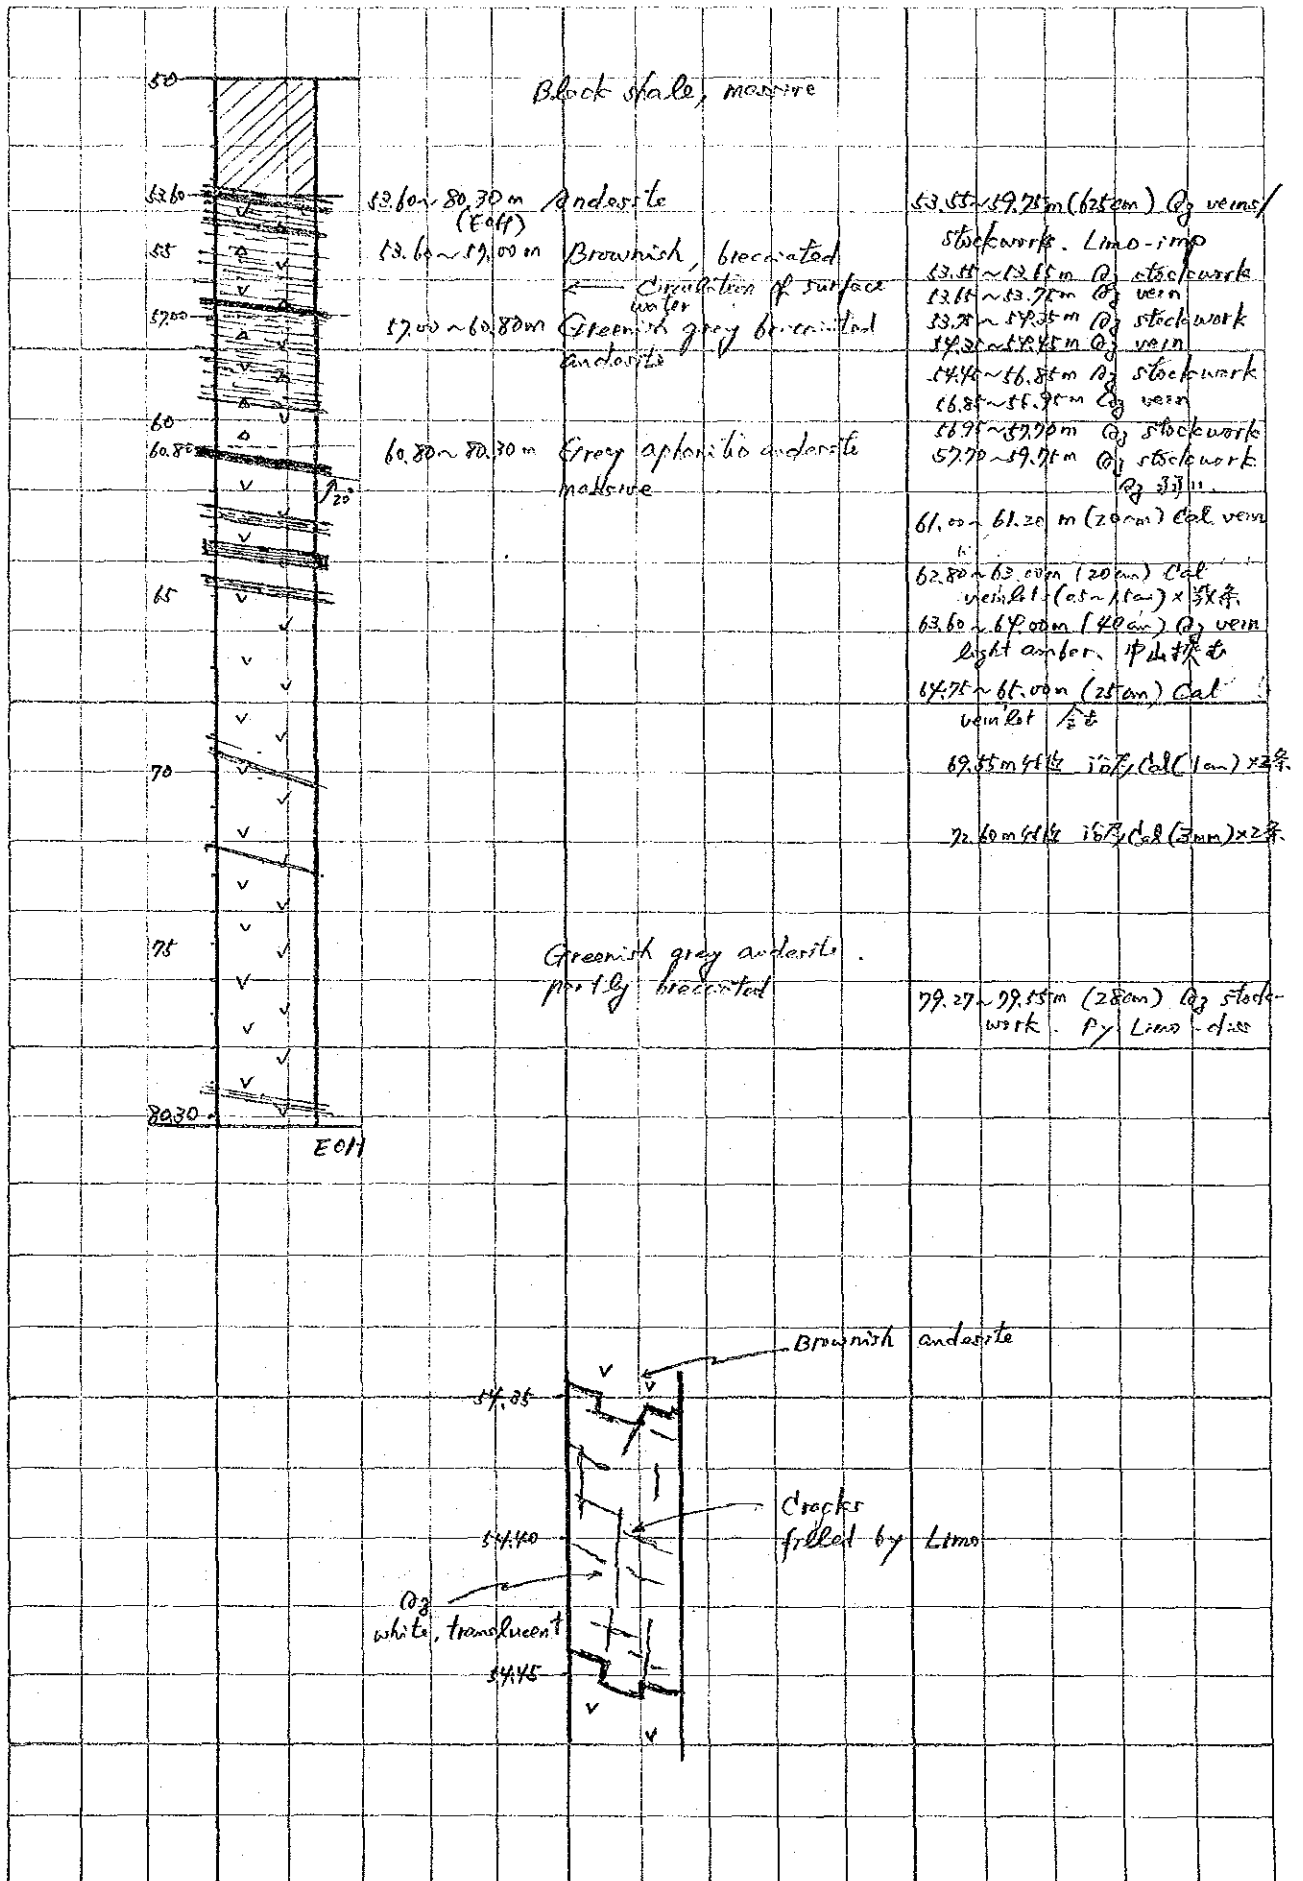 50
Black shale, massive
53.60
53.60~80.30m Andesite
(EOH)
55
53.60~57.00m Brownish, brecciated
← Circulation of surface
water
57.00
57.00~60.80m Greenish grey brecciated
andesite
60
60.80
60.80~80.30m Grey aphanitic andesite
massive
20°
65
70
75
Greenish grey andesite.
partly brecciated
80.30
EOH
53.55~59.75m (625cm) Qz veins/
stockworks. Limo-imp
53.55~53.65m Qz stockwork
53.65~53.75m Qz vein
53.75~54.35m Qz stockwork
54.35~54.45m Qz vein
54.45~56.85m Qz stockwork
56.85~56.95m Qz vein
56.95~57.70m Qz stockwork
57.70~59.75m Qz stockwork
Qz 弱い.
61.00~61.20m (20cm) Cal vein
62.80~63.00m (20cm) Cal
veinlets (0.5~1.5cm) × 数条
63.60~64.00m (40cm) Qz vein
light amber.
64.75~65.00m (25cm) Cal
veinlet 含む
69.55m付近 Cal (1cm) ×2条
72.60m付近 Cal (3mm) ×2条
79.27~79.55m (28cm) Qz stock-
work. Py Limo-diss
Brownish andesite
54.35
Cracks
filled by Limo
54.40
Qz
white, translucent
54.45